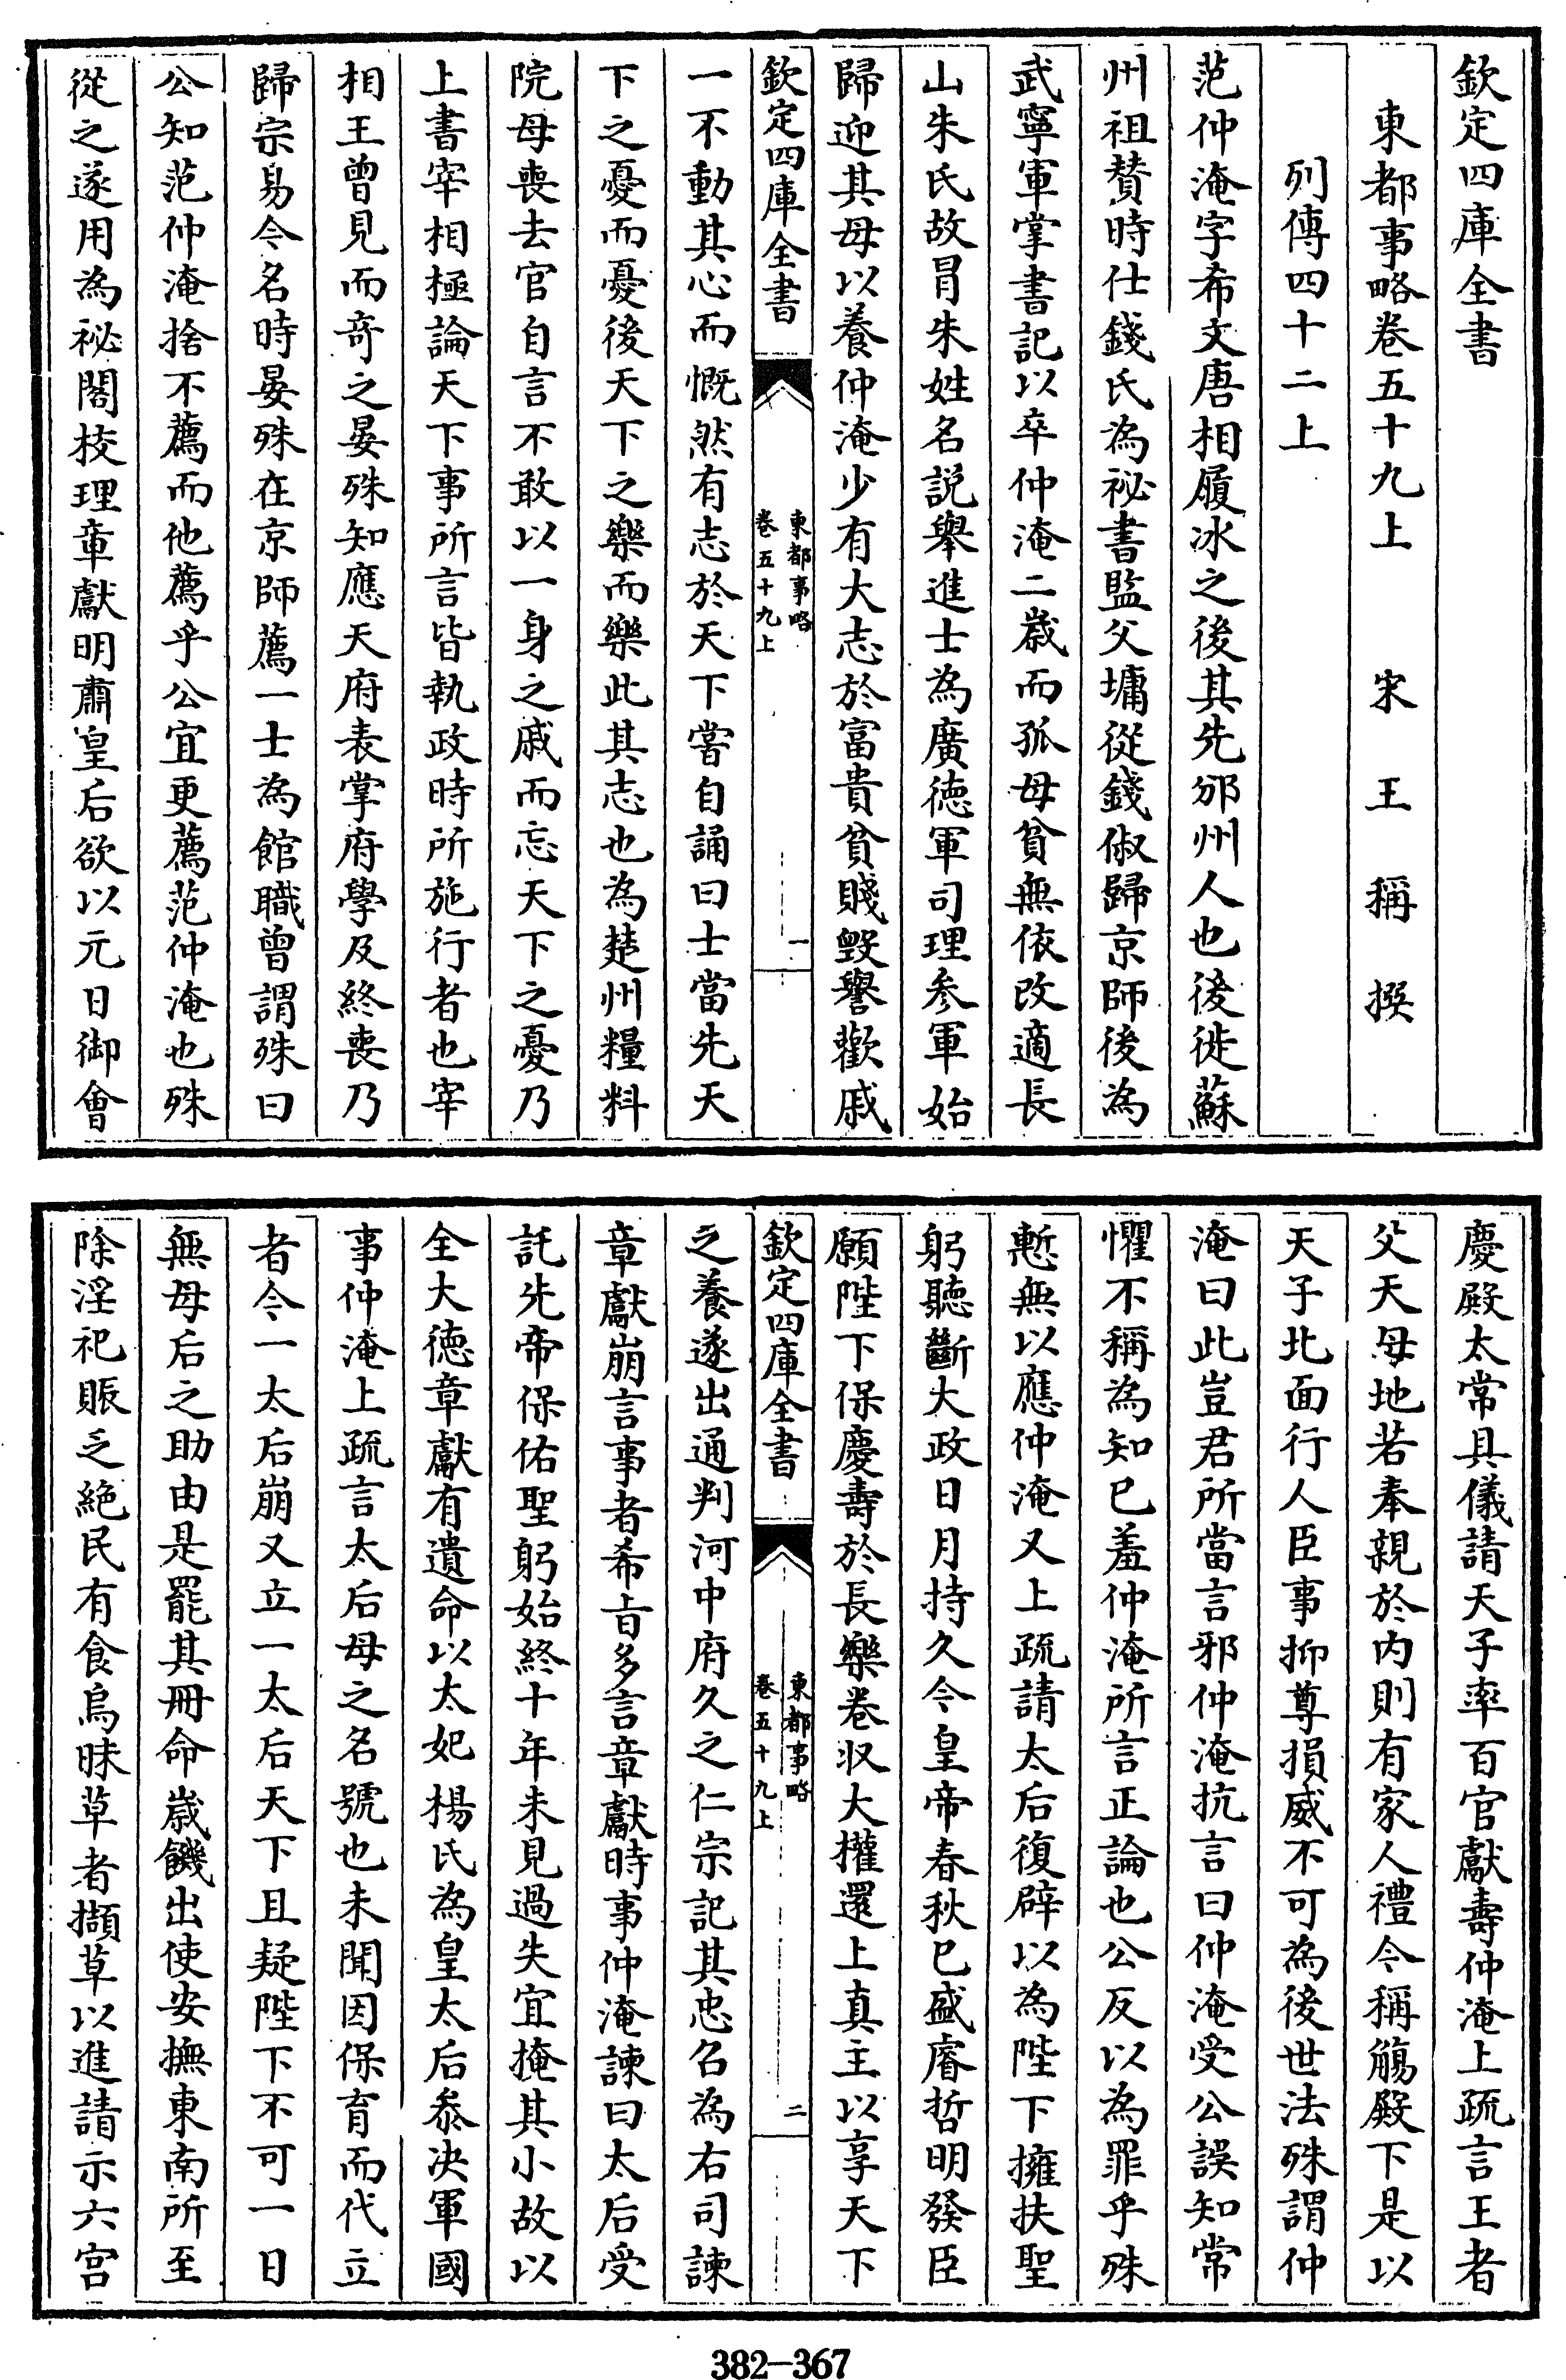 欽定四庫全書
東都事略卷五十九上　宋　王　稱　撰
列傳四十二上
范仲淹字希文唐相履冰之後其先邠州人也後徙蘇
州祖贊時仕錢氏為祕書監父墉從錢俶歸京師後為
武寧軍掌書記以卒仲淹二歲而孤母貧無依改適長
山朱氏故冒朱姓名說舉進士為廣德軍司理參軍始
歸迎其母以養仲淹少有大志於富貴貧賤毀譽歡戚
欽定四庫全書
東都事略
卷五十九上
一
一不動其心而慨然有志於天下嘗自誦曰士當先天
下之憂而憂後天下之樂而樂此其志也為楚州糧料
院母喪去官自言不敢以一身之戚而忘天下之憂乃
上書宰相極論天下事所言皆執政時所施行者也宰
相王曾見而奇之晏殊知應天府表掌府學及終喪乃
歸宗易今名時晏殊在京師薦一士為館職曾謂殊曰
公知范仲淹捨不薦而他薦乎公宜更薦范仲淹也殊
從之遂用為祕閣校理章獻明肅皇后欲以元日御會
慶殿太常具儀請天子率百官獻壽仲淹上疏言王者
父天母地若奉親於內則有家人禮令稱觴殿下是以
天子北面行人臣事抑尊損威不可為後世法殊謂仲
淹曰此豈君所當言邪仲淹抗言曰仲淹受公誤知常
懼不稱為知已羞仲淹所言正論也公反以為罪乎殊
慙無以應仲淹又上疏請太后復辟以為陛下擁扶聖
躬聽斷大政日月持久今皇帝春秋已盛睿哲明發臣
願陛下保慶壽於長樂卷收大權還上真主以享天下
欽定四庫全書
東都事略
卷五十九上
二
之養遂出通判河中府久之仁宗記其忠召為右司諫
章獻崩言事者希旨多言章獻時事仲淹諫曰太后受
託先帝保佑聖躬始終十年未見過失宜掩其小故以
全大德章獻有遺命以太妃楊氏為皇太后叅決軍國
事仲淹上疏言太后母之名號也未聞因保育而代立
者今一太后崩又立一太后天下且疑陛下不可一日
無母后之助由是罷其冊命歲饑出使安撫東南所至
除淫祀賑乏絕民有食烏昧草者擷草以進請示六宮
382-367